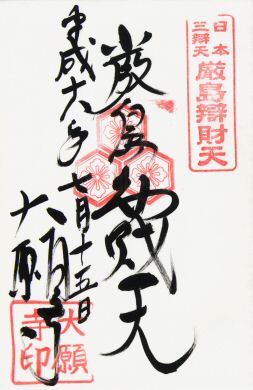 日本
三辯天
厳島辯財天
厳島弁財天
平成十八年七月十五日
大願寺
大願
寺印